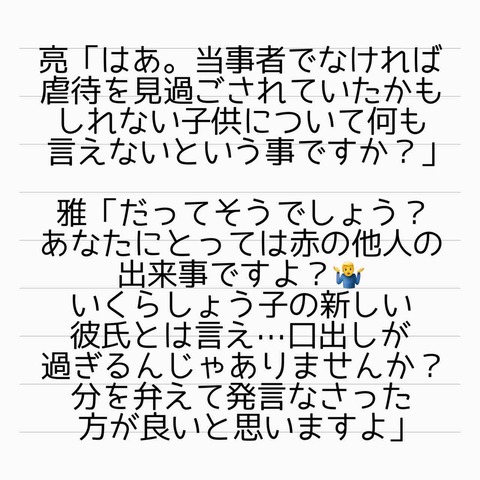 亮「はあ。当事者でなければ
虐待を見過ごされていたかも
しれない子供について何も
言えないという事ですか？」
雅「だってそうでしょう？
あなたにとっては赤の他人の
出来事ですよ？🤷‍♂️
いくらしょう子の新しい
彼氏とは言え…口出しが
過ぎるんじゃありませんか？
分を弁えて発言なさった
方が良いと思いますよ」